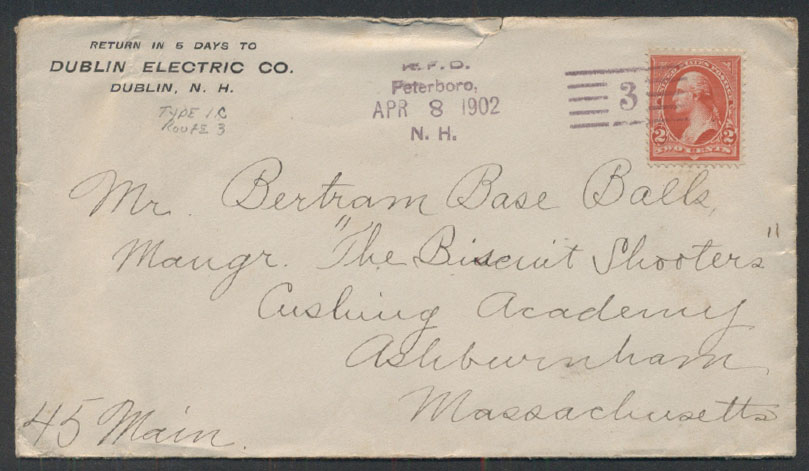 RETURN IN 5 DAYS TO
DUBLIN ELECTRIC CO.
DUBLIN, N. H.
TYPE 1C
ROUTE 3
R.F.D.
Peterboro,
APR 8 1902
N. H.
3
2 2
TWO CENTS
Mr. Bertram Base Balls,
Mangr. "The Biscuit Shooters"
Cushing Academy
Ashburnham,
Massachusetts
45 Main.